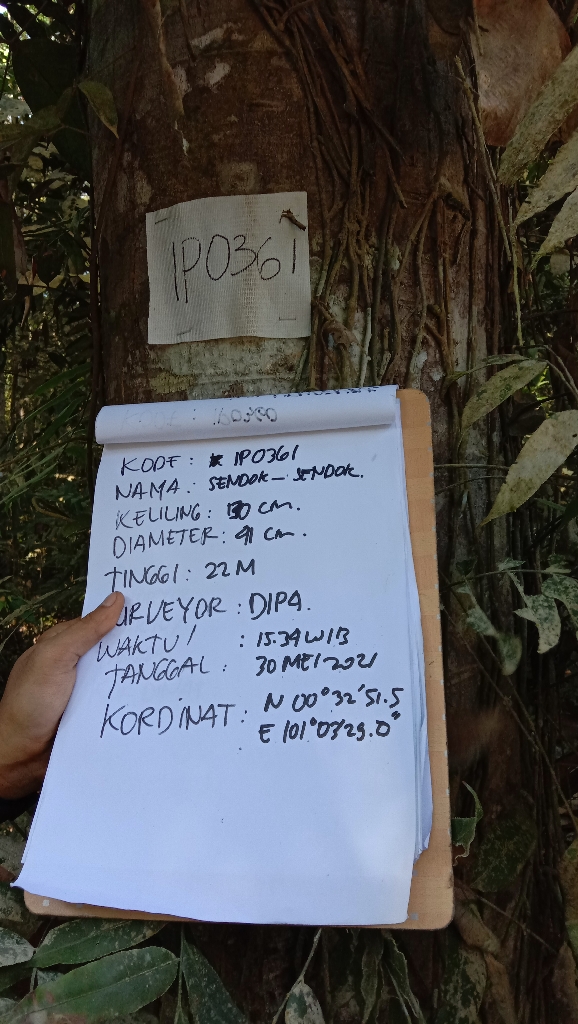 IP0361
KODE : IP0361
NAMA : SENDOK - SENDOK.
KELILING : 130 cm.
DIAMETER : 41 cm.
TINGGI : 22 M
SURVEYOR : DIPA.
WAKTU / : 15.34 WIB
TANGGAL : 30 MEI 2021
KORDINAT : N 00°32'51.5
E 101°03'29.0"